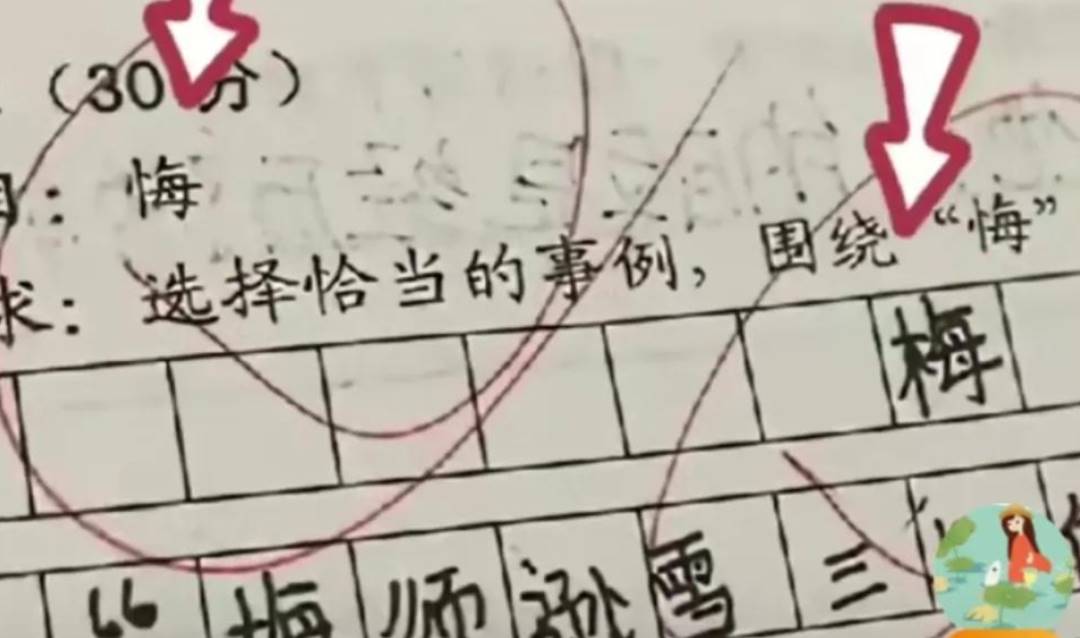 （30分）
目：悔
求：选择恰当的事例，围绕“悔”
梅
“梅须逊雪三